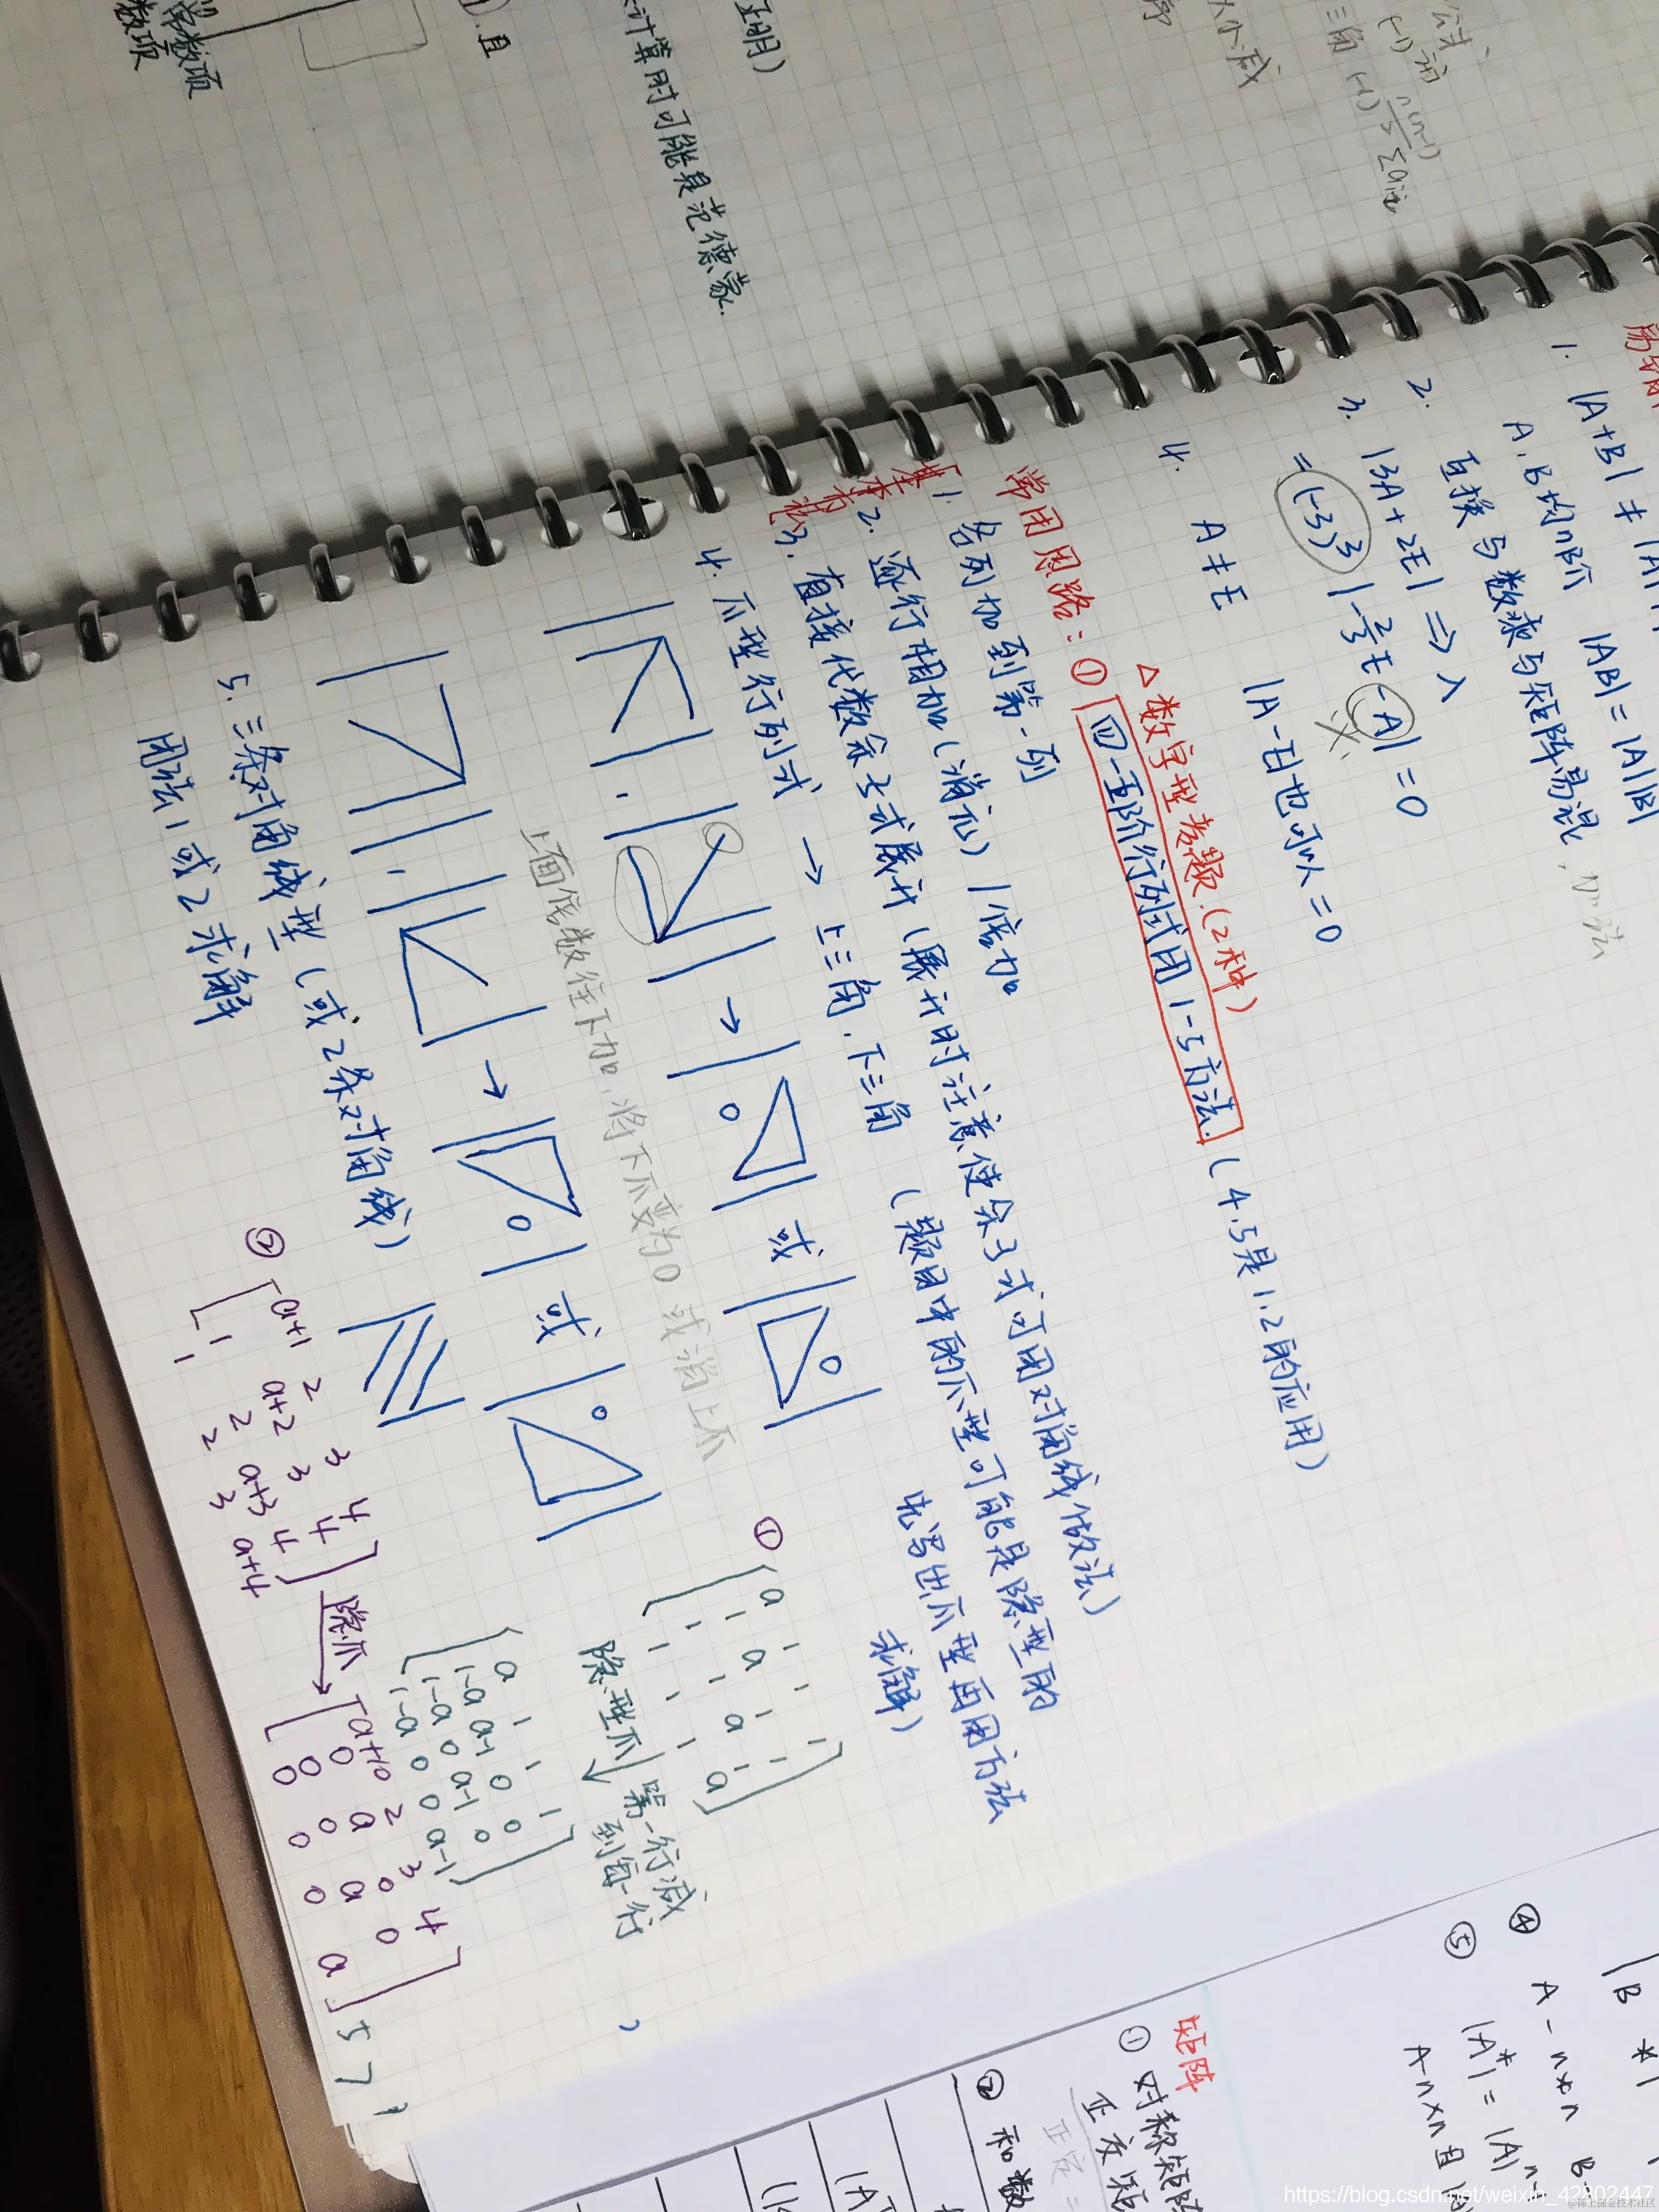 数项
常数项
).且
正明)
计算时可能是范德蒙.
大小减
公式、
三角
n(n-1)
1. |A+B| ≠ |A|
A.B均n阶 |AB|=|A||B|
2. 互换与数乘与矩阵易混,
3. |3A+2E| ⇒ λ
=(-3)³|-2/3E-A|=0
4. A≠E |A-E|也可以=0
△数字型考题.(2种)
常用思路:① 四-五阶行列式用1-5方法. (4.5是1.2的应用)
1. 各列加到第一列
2. 逐行相加(消元) /倍加
3. 直接代数余子式展开(展开时注意使余子式可用对角线做法)
4. 爪型行列式 → 上三角.下三角 (题目中的爪型可能是隐型的
先写出爪型再用方法
求解)
→ 0 或 0
上面倍数往下加,将下爪变为0 或消上爪
→ 0 或 0
5. 三条对角线型(或2条对角线)
用法1或2求解
①
a 1 1 1
1 a 1 1
1 1 a 1
1 1 1 a
隐型爪 第一行减
到每一行
a 1 1 1
1-a a-1 0 0
1-a 0 a-1 0
1-a 0 0 a-1
②
a+1 2 3 4
1 a+2 3 4
1 2 a+3 4
1 2 3 a+4
隐爪
a+10 2 3 4
0 a 0 0
0 0 a 0
0 0 0 a
矩阵
① 对称矩阵
正交矩
正定=
② 和数
④ A-n×n B
⑤ |A*|=|A|ⁿ⁻
A-n×n且
https://blog.csdn.net/weixin_42802447
@稀土掘金技术社区